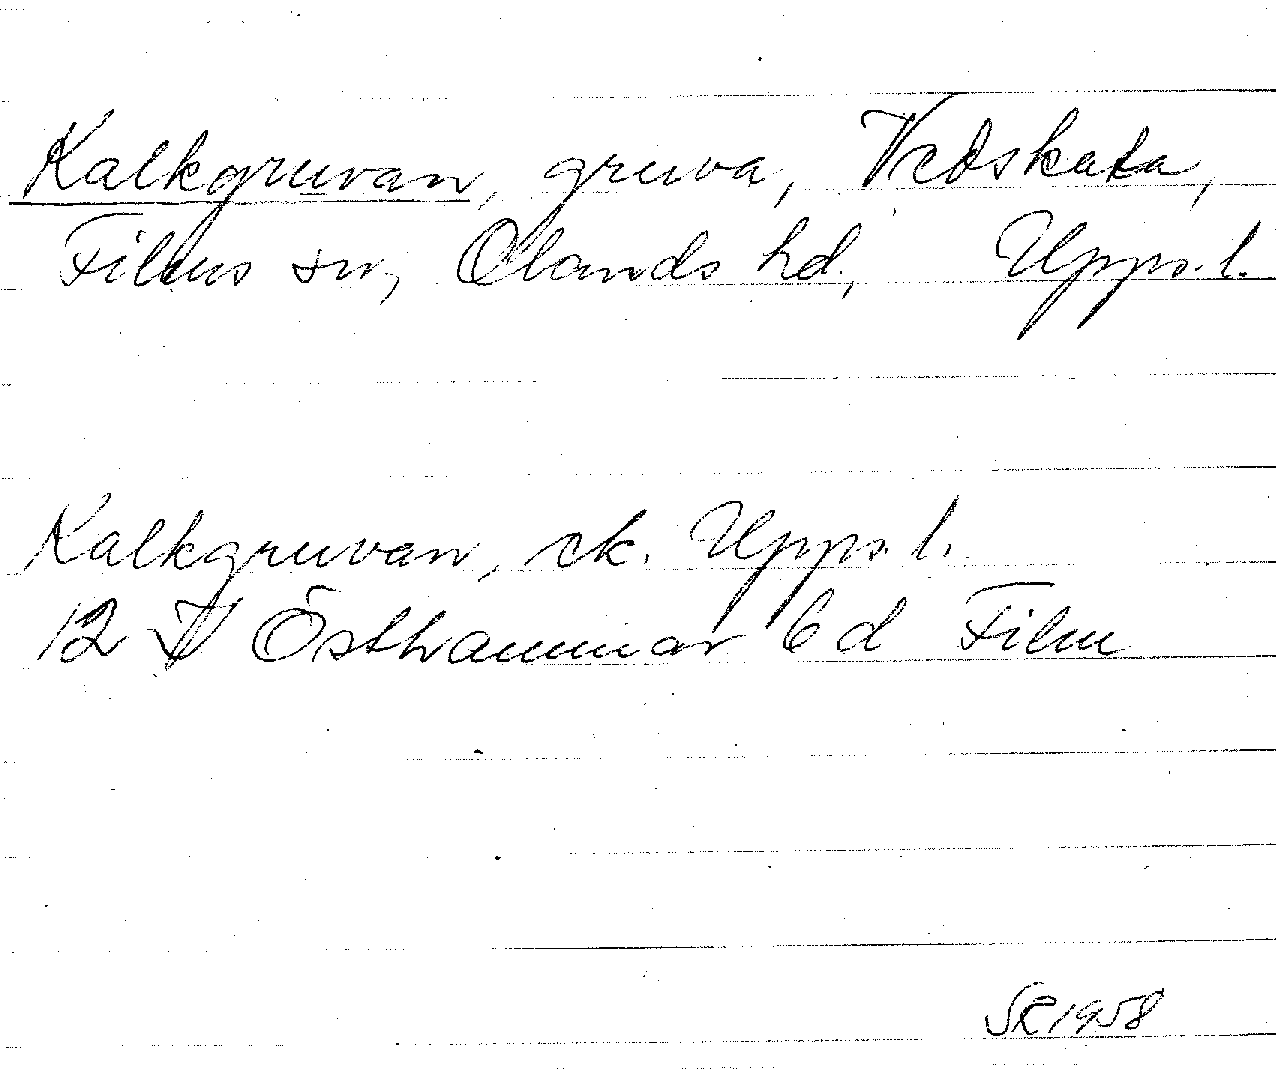 Kalkgruvan, gruva, Vedskata,
Films sn, Olands hd, Upps. l.
Kalkgruvan, ek. Upps. l.
12 I Östhammar 6 d Film
SR 1958